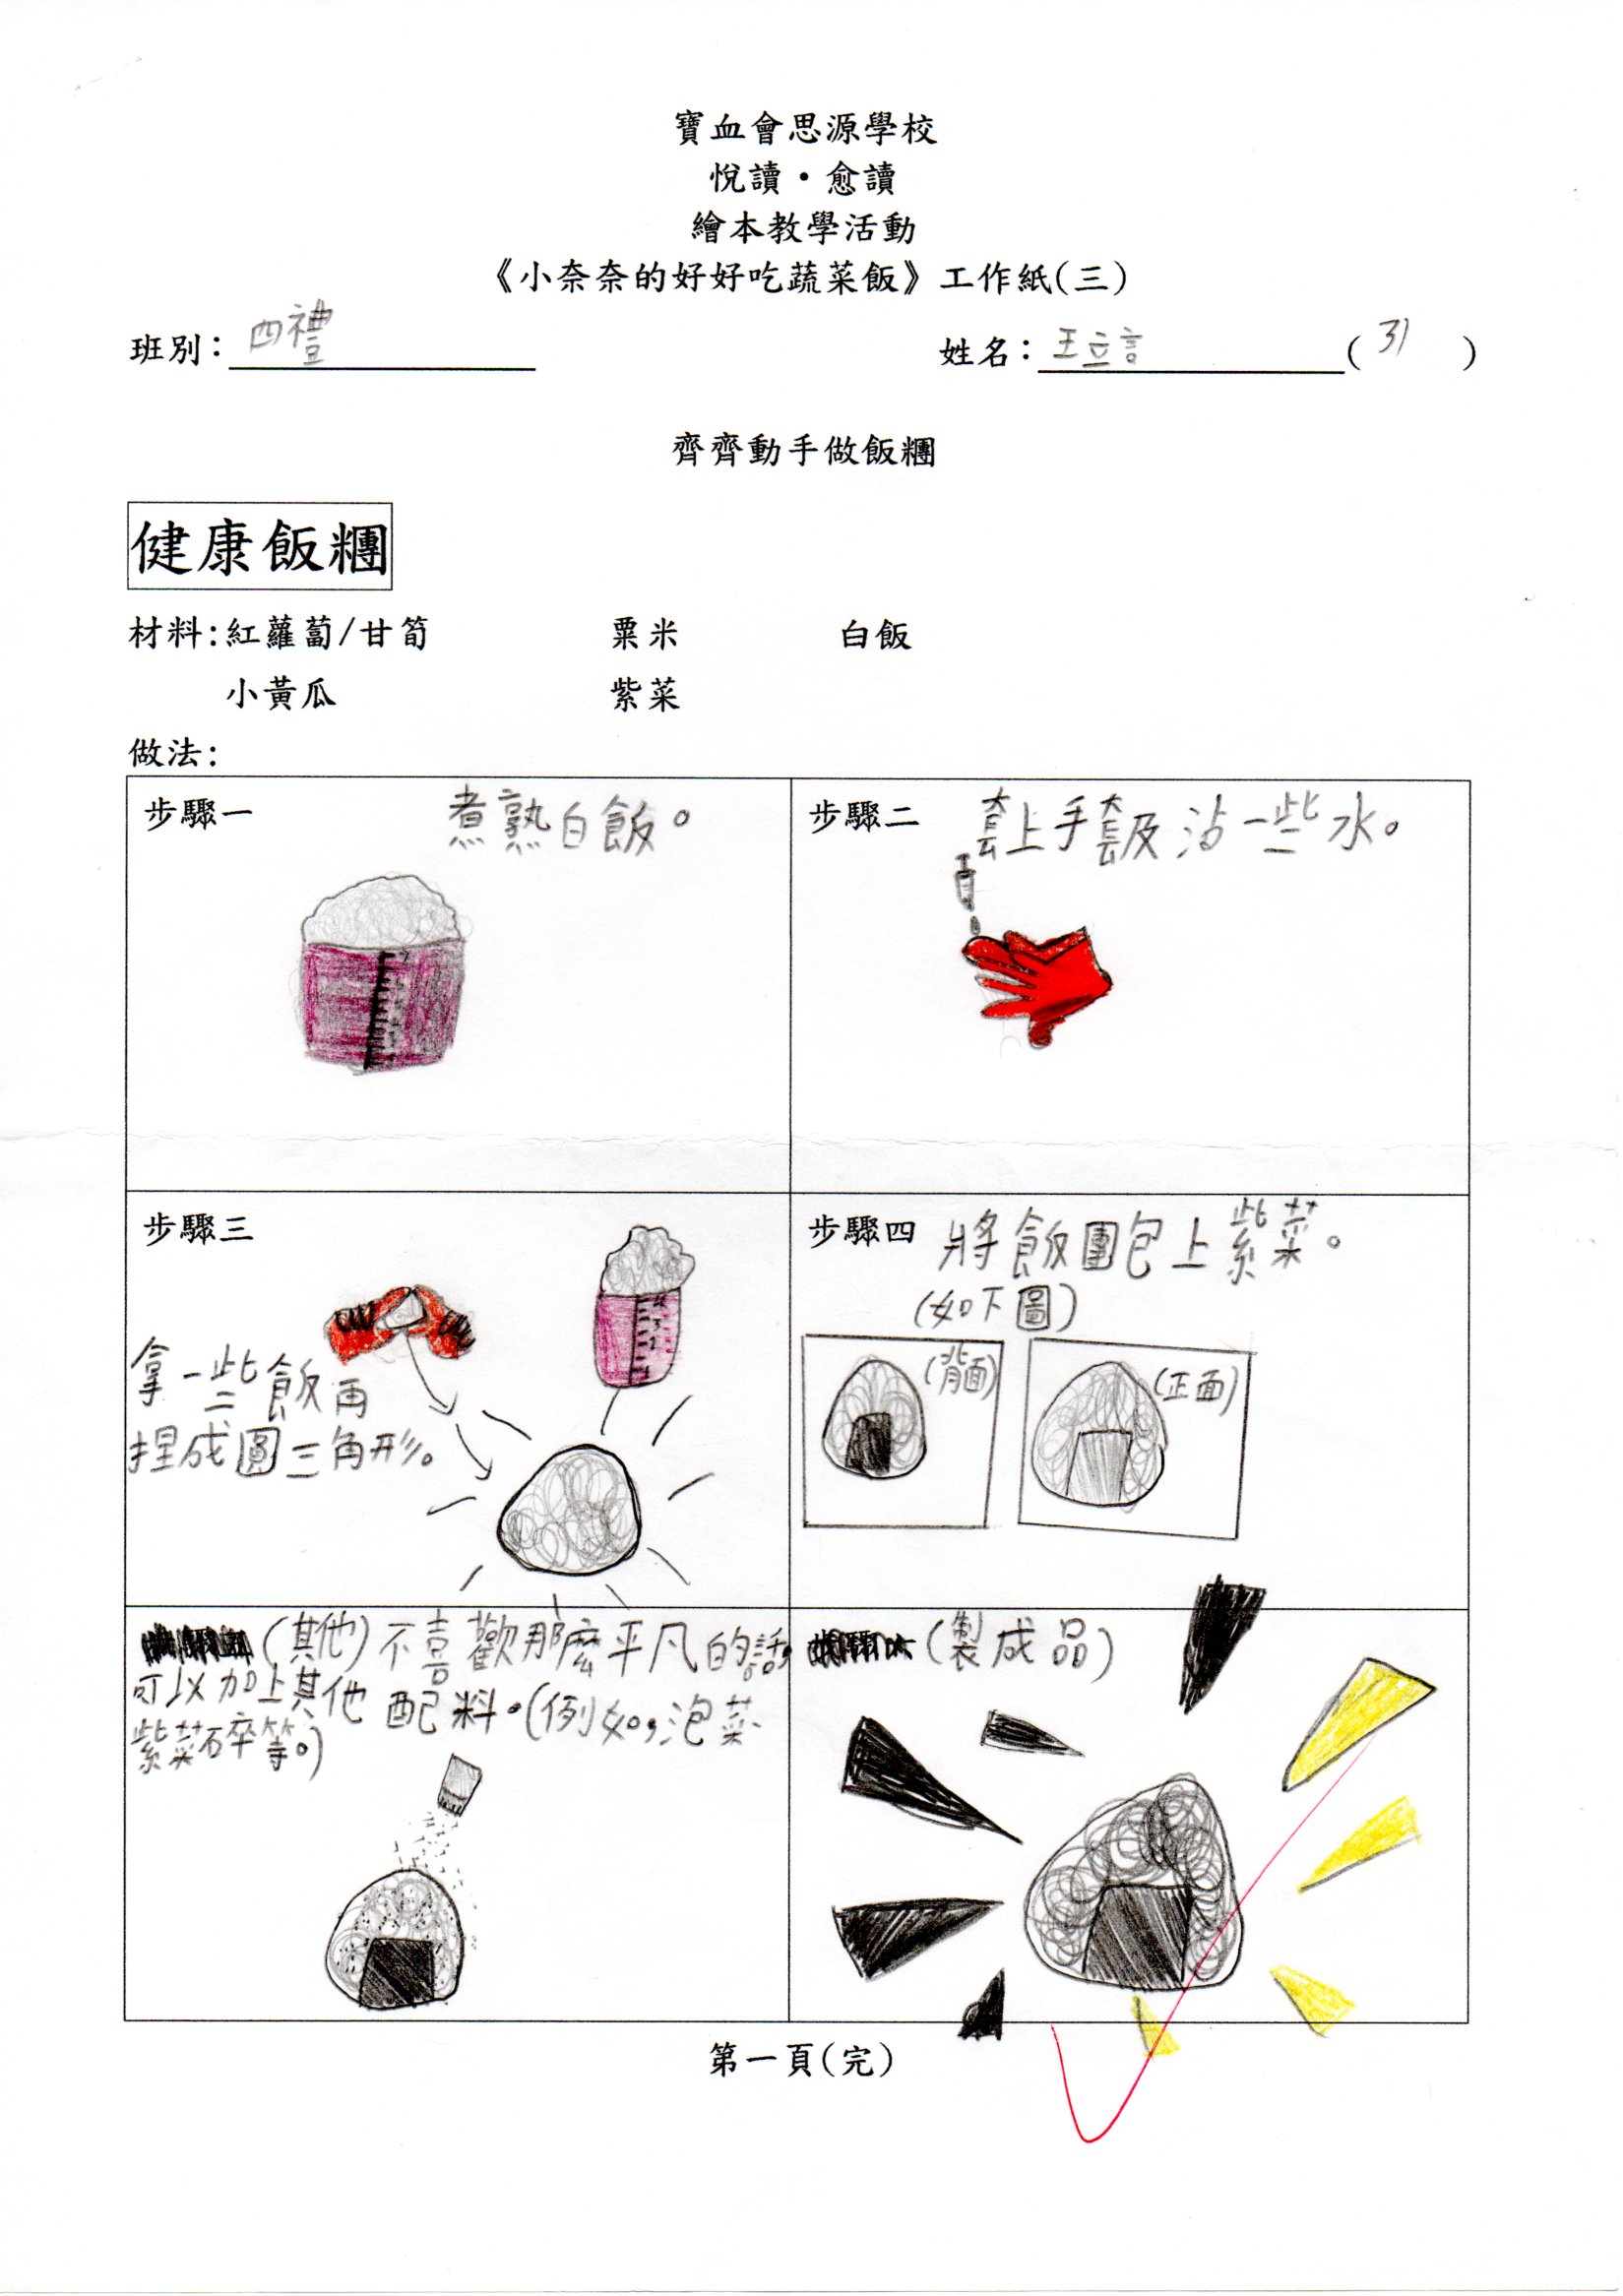 寶血會思源學校
悅讀•愈讀
繪本教學活動
《小奈奈的好好吃蔬菜飯》工作紙(三)
班別：四禮 姓名：王立言(31)
齊齊動手做飯糰
健康飯糰
材料：紅蘿蔔/甘筍 粟米 白飯
小黃瓜 紫菜
做法：
步驟一 煮熟白飯。
步驟二 套上手套及沾一些水。
步驟三
拿一些飯再
捏成圓三角形。
步驟四 將飯團包上紫菜。
(如下圖)
(背面) (正面)
(其他)不喜歡那麼平凡的話，
可以加上其他配料。(例如，泡菜、
紫菜碎等。)
(製成品)
第一頁(完)